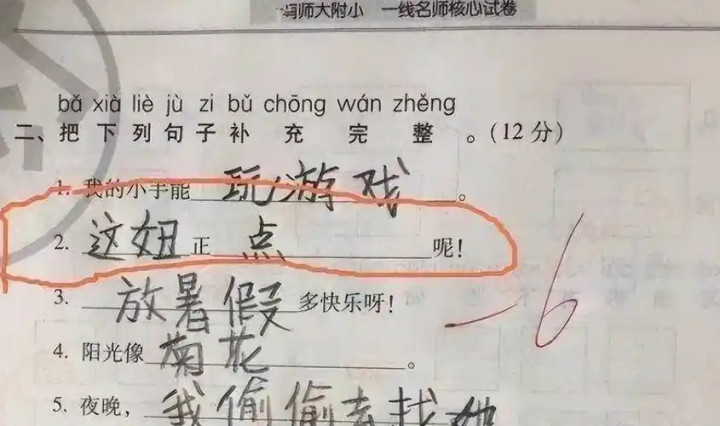 师大附小 一线名师核心试卷
bǎ xià liè jù zi bǔ chōng wán zhěng
二、把下列句子补充完整。(12分)
1. 我的小手能玩游戏。
2. 这妞正点呢!
3. 放暑假多快乐呀!
4. 阳光像菊花。
5. 夜晚,我偷偷去找她
-6